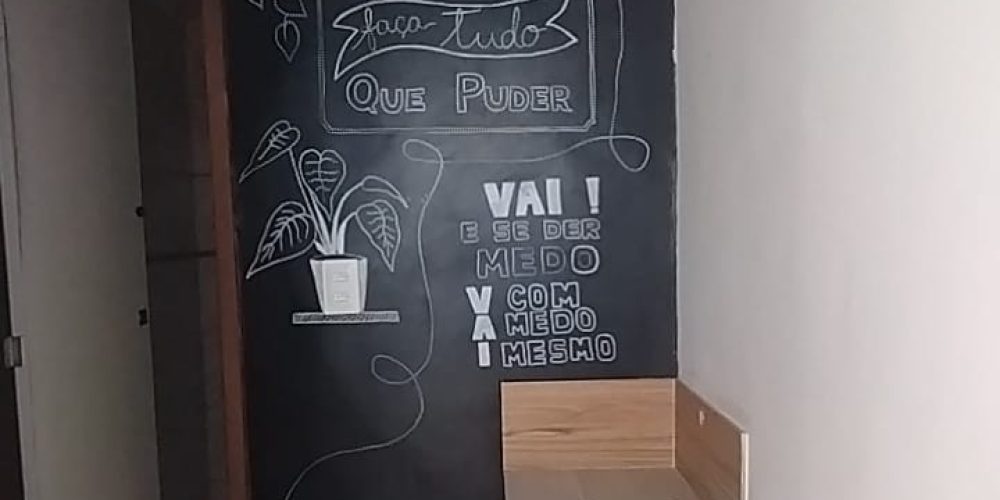 faça tudo
QUE PUDER
VAI !
E SE DER
MEDO
VAI COM
MEDO
MESMO